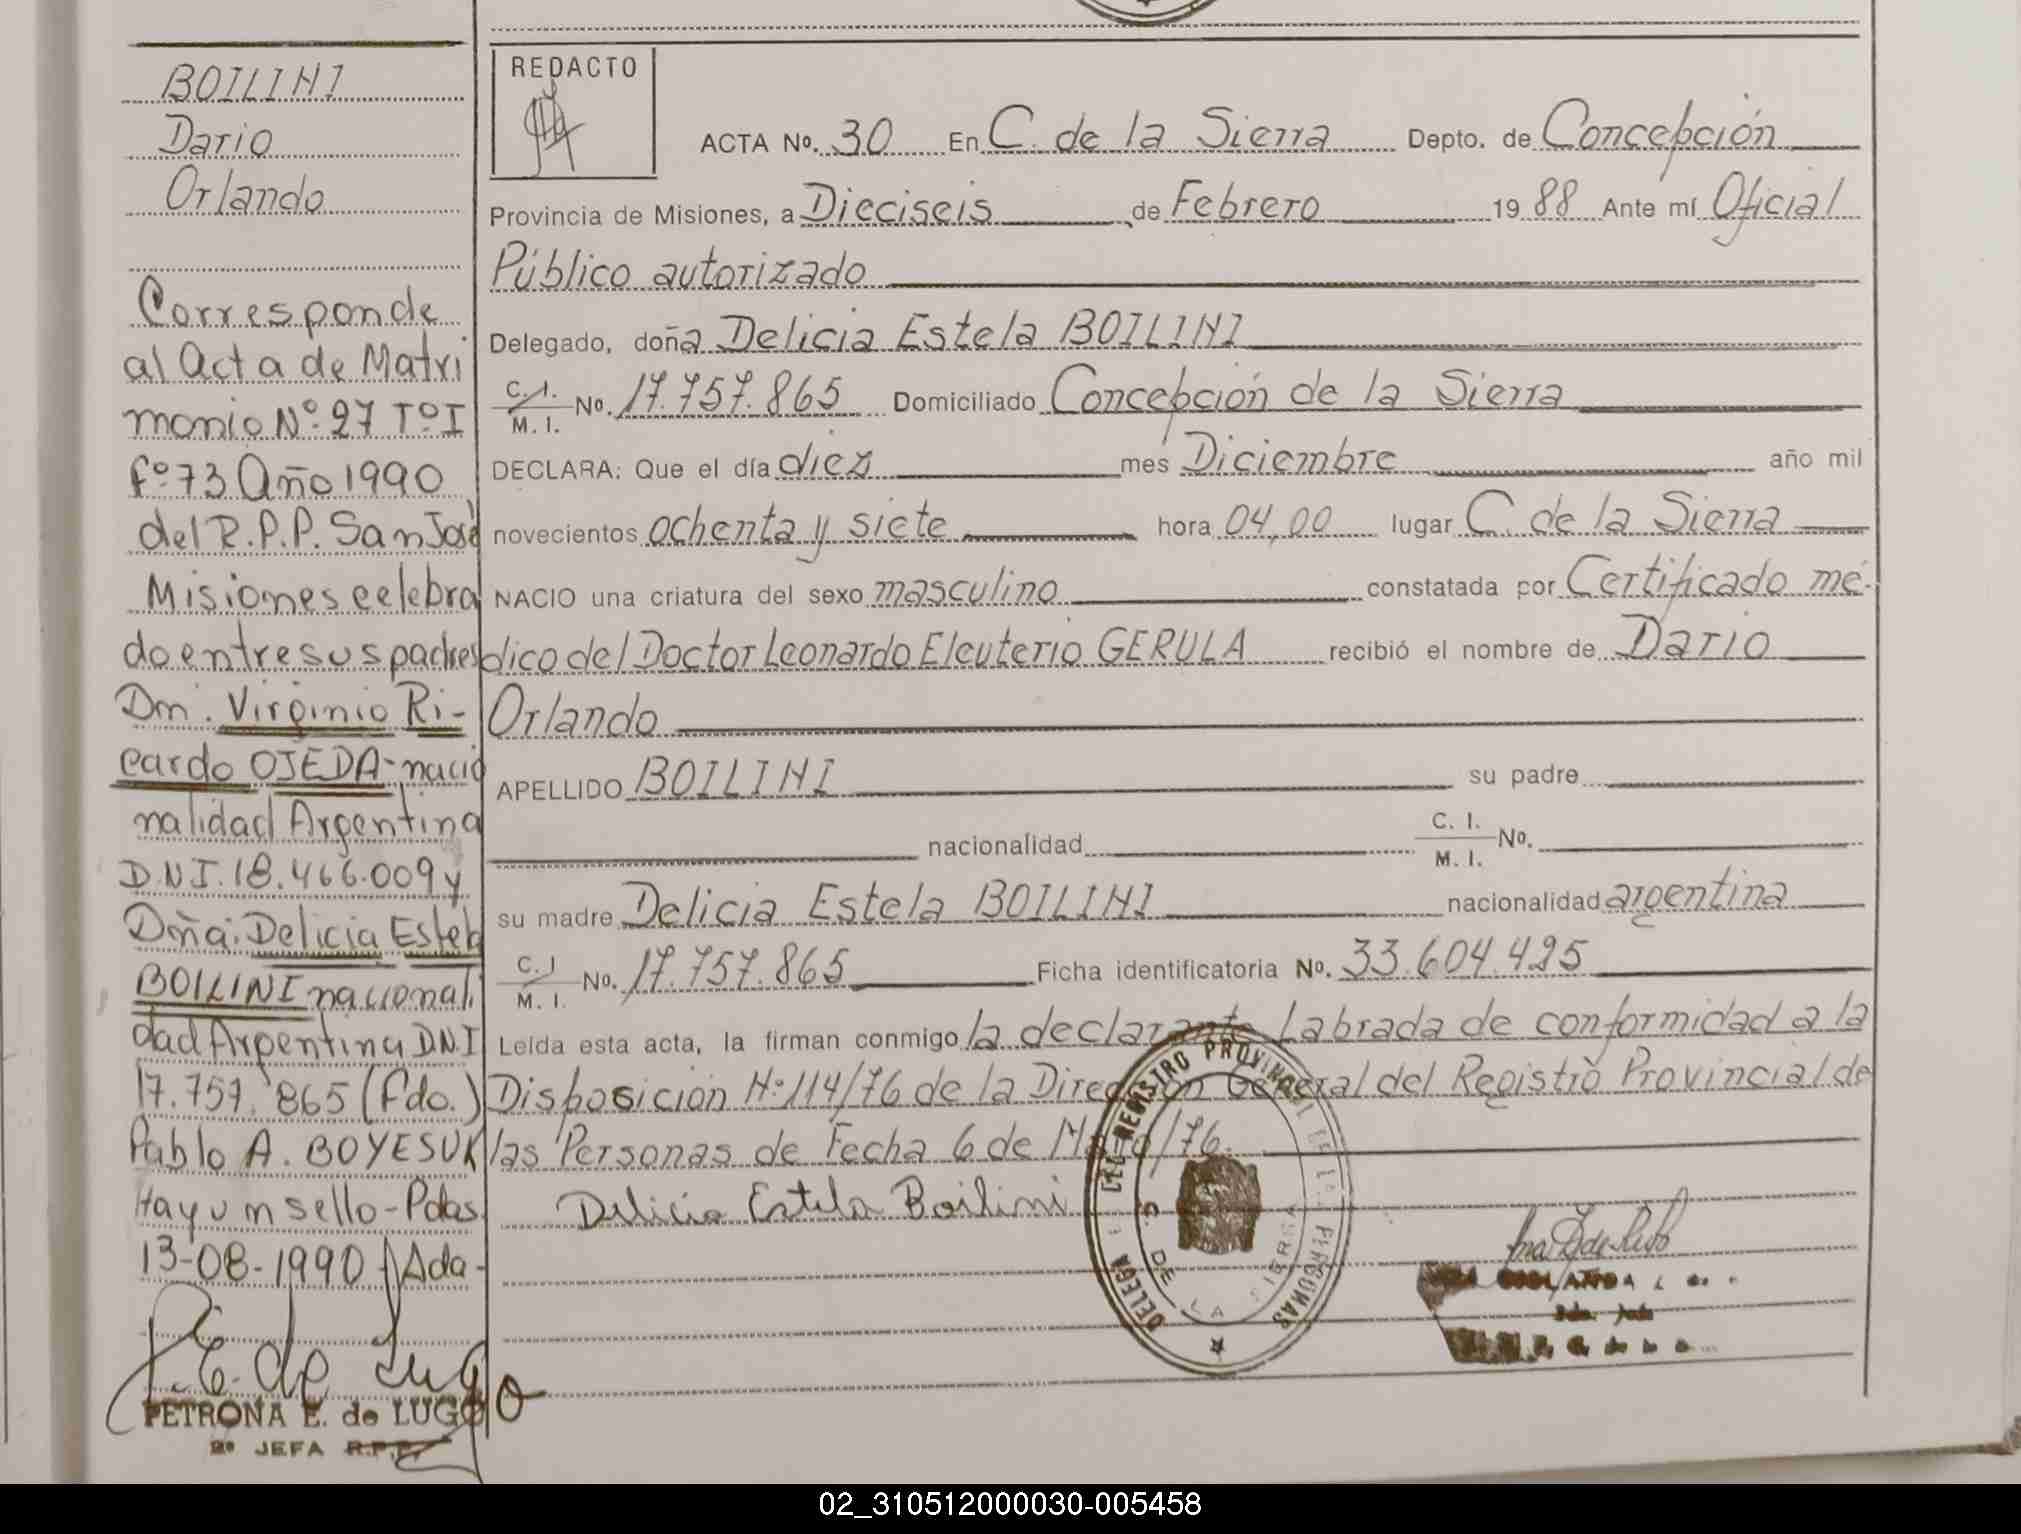 BOILINI
Dario
Orlando
Corresponde
al Acta de Matri
monio Nº 27 TºI
fº 73 Año 1990
del R.P.P. San José
Misiones celebra
do entre sus padres
Dn. Virginio Ri-
cardo OJEDA-nacio
nalidad Argentina
D.N.I. 18.466.009 y
Dña. Delicia Estela
BOILINI nacionali
dad Argentina D.N.I
17.757.865 (Fdo.)
Pablo A. BOYESUK
Hay un sello - Pdas
13-08-1990
P.E. de Lugo
PETRONA E. de LUGO
2º JEFA R.P.P.
REDACTO
ACTA No. 30 En C. de la Sierra Depto. de Concepción
Provincia de Misiones, a Dieciseis de Febrero 1988 Ante mí Oficial
Público autorizado
Delegado, doña Delicia Estela BOILINI
C. I. / M. I. No. 17.757.865 Domiciliado Concepción de la Sierra
DECLARA: Que el día diez mes Diciembre año mil
novecientos ochenta y siete hora 04,00 lugar C. de la Sierra
NACIO una criatura del sexo masculino constatada por Certificado mé-
dico del Doctor Leonardo Eleuterio GERULA recibió el nombre de Dario
Orlando
APELLIDO BOILINI su padre
nacionalidad C. I. / M. I. No.
su madre Delicia Estela BOILINI nacionalidad argentina
C. I / M. I. No. 17.757.865 Ficha identificatoria No. 33.604.425
Leída esta acta, la firman conmigo la declarante Labrada de conformidad a la
Disposición Nº 114/76 de la Dirección General del Registro Provincial de
las Personas de Fecha 6 de /76.
Delicia Estela Boilini
DELEGA DEL REGISTRO PROVINCIAL DE LAS PERSONAS
C. DE LA SIERRA
02_310512000030-005458